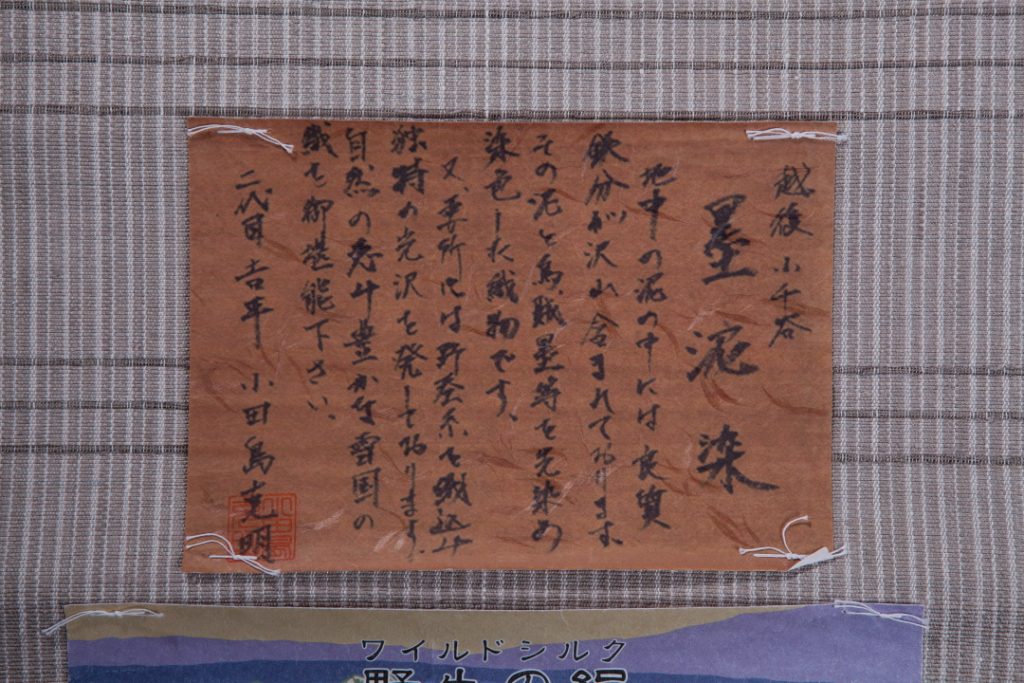 越後 小千谷
墨泥染
地中の泥の中には良質
鉄分が沢山含まれております。
その泥と烏賊墨等を先染め
染色した織物です。
又、要所には野蚕糸を織込み
独特の光沢を発しております。
自然の恵み豊かな雪国の
織を御堪能下さい。
二代目 吉平 小田島克明
ワイルドシルク
野生の絹